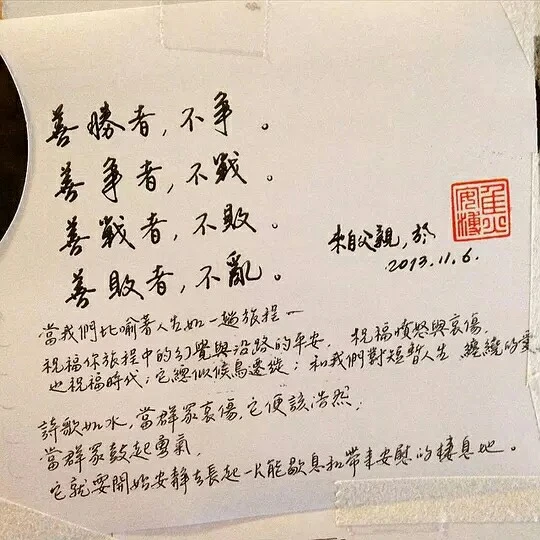 善勝者,不爭。
善爭者,不戰。
善戰者,不敗。
善敗者,不亂。
父親,於
2013.11.6.
焦安溥
當我們比喻著人生如一趟旅程—
祝福你旅程中的幻覺與沿路的平安. 祝福憤怒與哀傷.
也祝福時代;它總似候鳥遷徙;和我們對短暫人生 纏繞的愛
詩歌如水,當群眾哀傷,它便該浩然;
當群眾鼓起勇氣,
它就要開始安靜去長起一片能歇息和帶來安慰的棲息地。